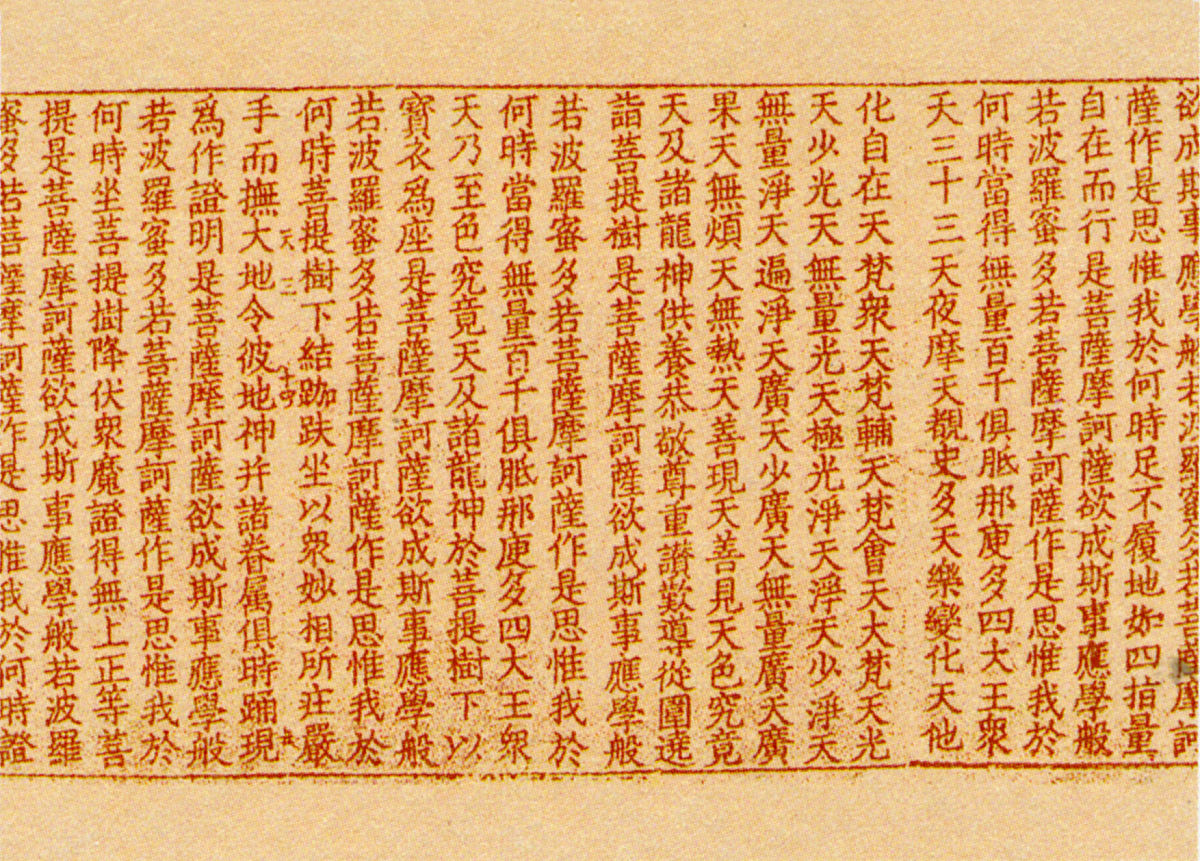 欲成斯事應學般若波羅蜜多若菩薩摩訶
薩作是思惟我於何時足不履地如四指量
自在而行是菩薩摩訶薩欲成斯事應學般
若波羅蜜多若菩薩摩訶薩作是思惟我於
何時當得無量百千俱胝那庾多四大王衆
天三十三天夜摩天覩史多天樂變化天他
化自在天梵衆天梵輔天梵會天大梵天光
天少光天無量光天極光淨天淨天少淨天
無量淨天遍淨天廣天少廣天無量廣天廣
果天無煩天無熱天善現天善見天色究竟
天及諸龍神供養恭敬尊重讚歎導從圍遶
詣菩提樹是菩薩摩訶薩欲成斯事應學般
若波羅蜜多若菩薩摩訶薩作是思惟我於
何時當得無量百千俱胝那庾多四大王衆
天乃至色究竟天及諸龍神於菩提樹下以
寶衣爲座是菩薩摩訶薩欲成斯事應學般
若波羅蜜多若菩薩摩訶薩作是思惟我於
何時菩提樹下結跏趺坐以衆妙相所莊嚴
天三 十四
手而撫大地令彼地神幷諸眷屬俱時踊現
爲作證明是菩薩摩訶薩欲成斯事應學般
若波羅蜜多若菩薩摩訶薩作是思惟我於
何時坐菩提樹降伏衆魔證得無上正等菩
提是菩薩摩訶薩欲成斯事應學般若波羅
蜜多若菩薩摩訶薩作是思惟我於何時證